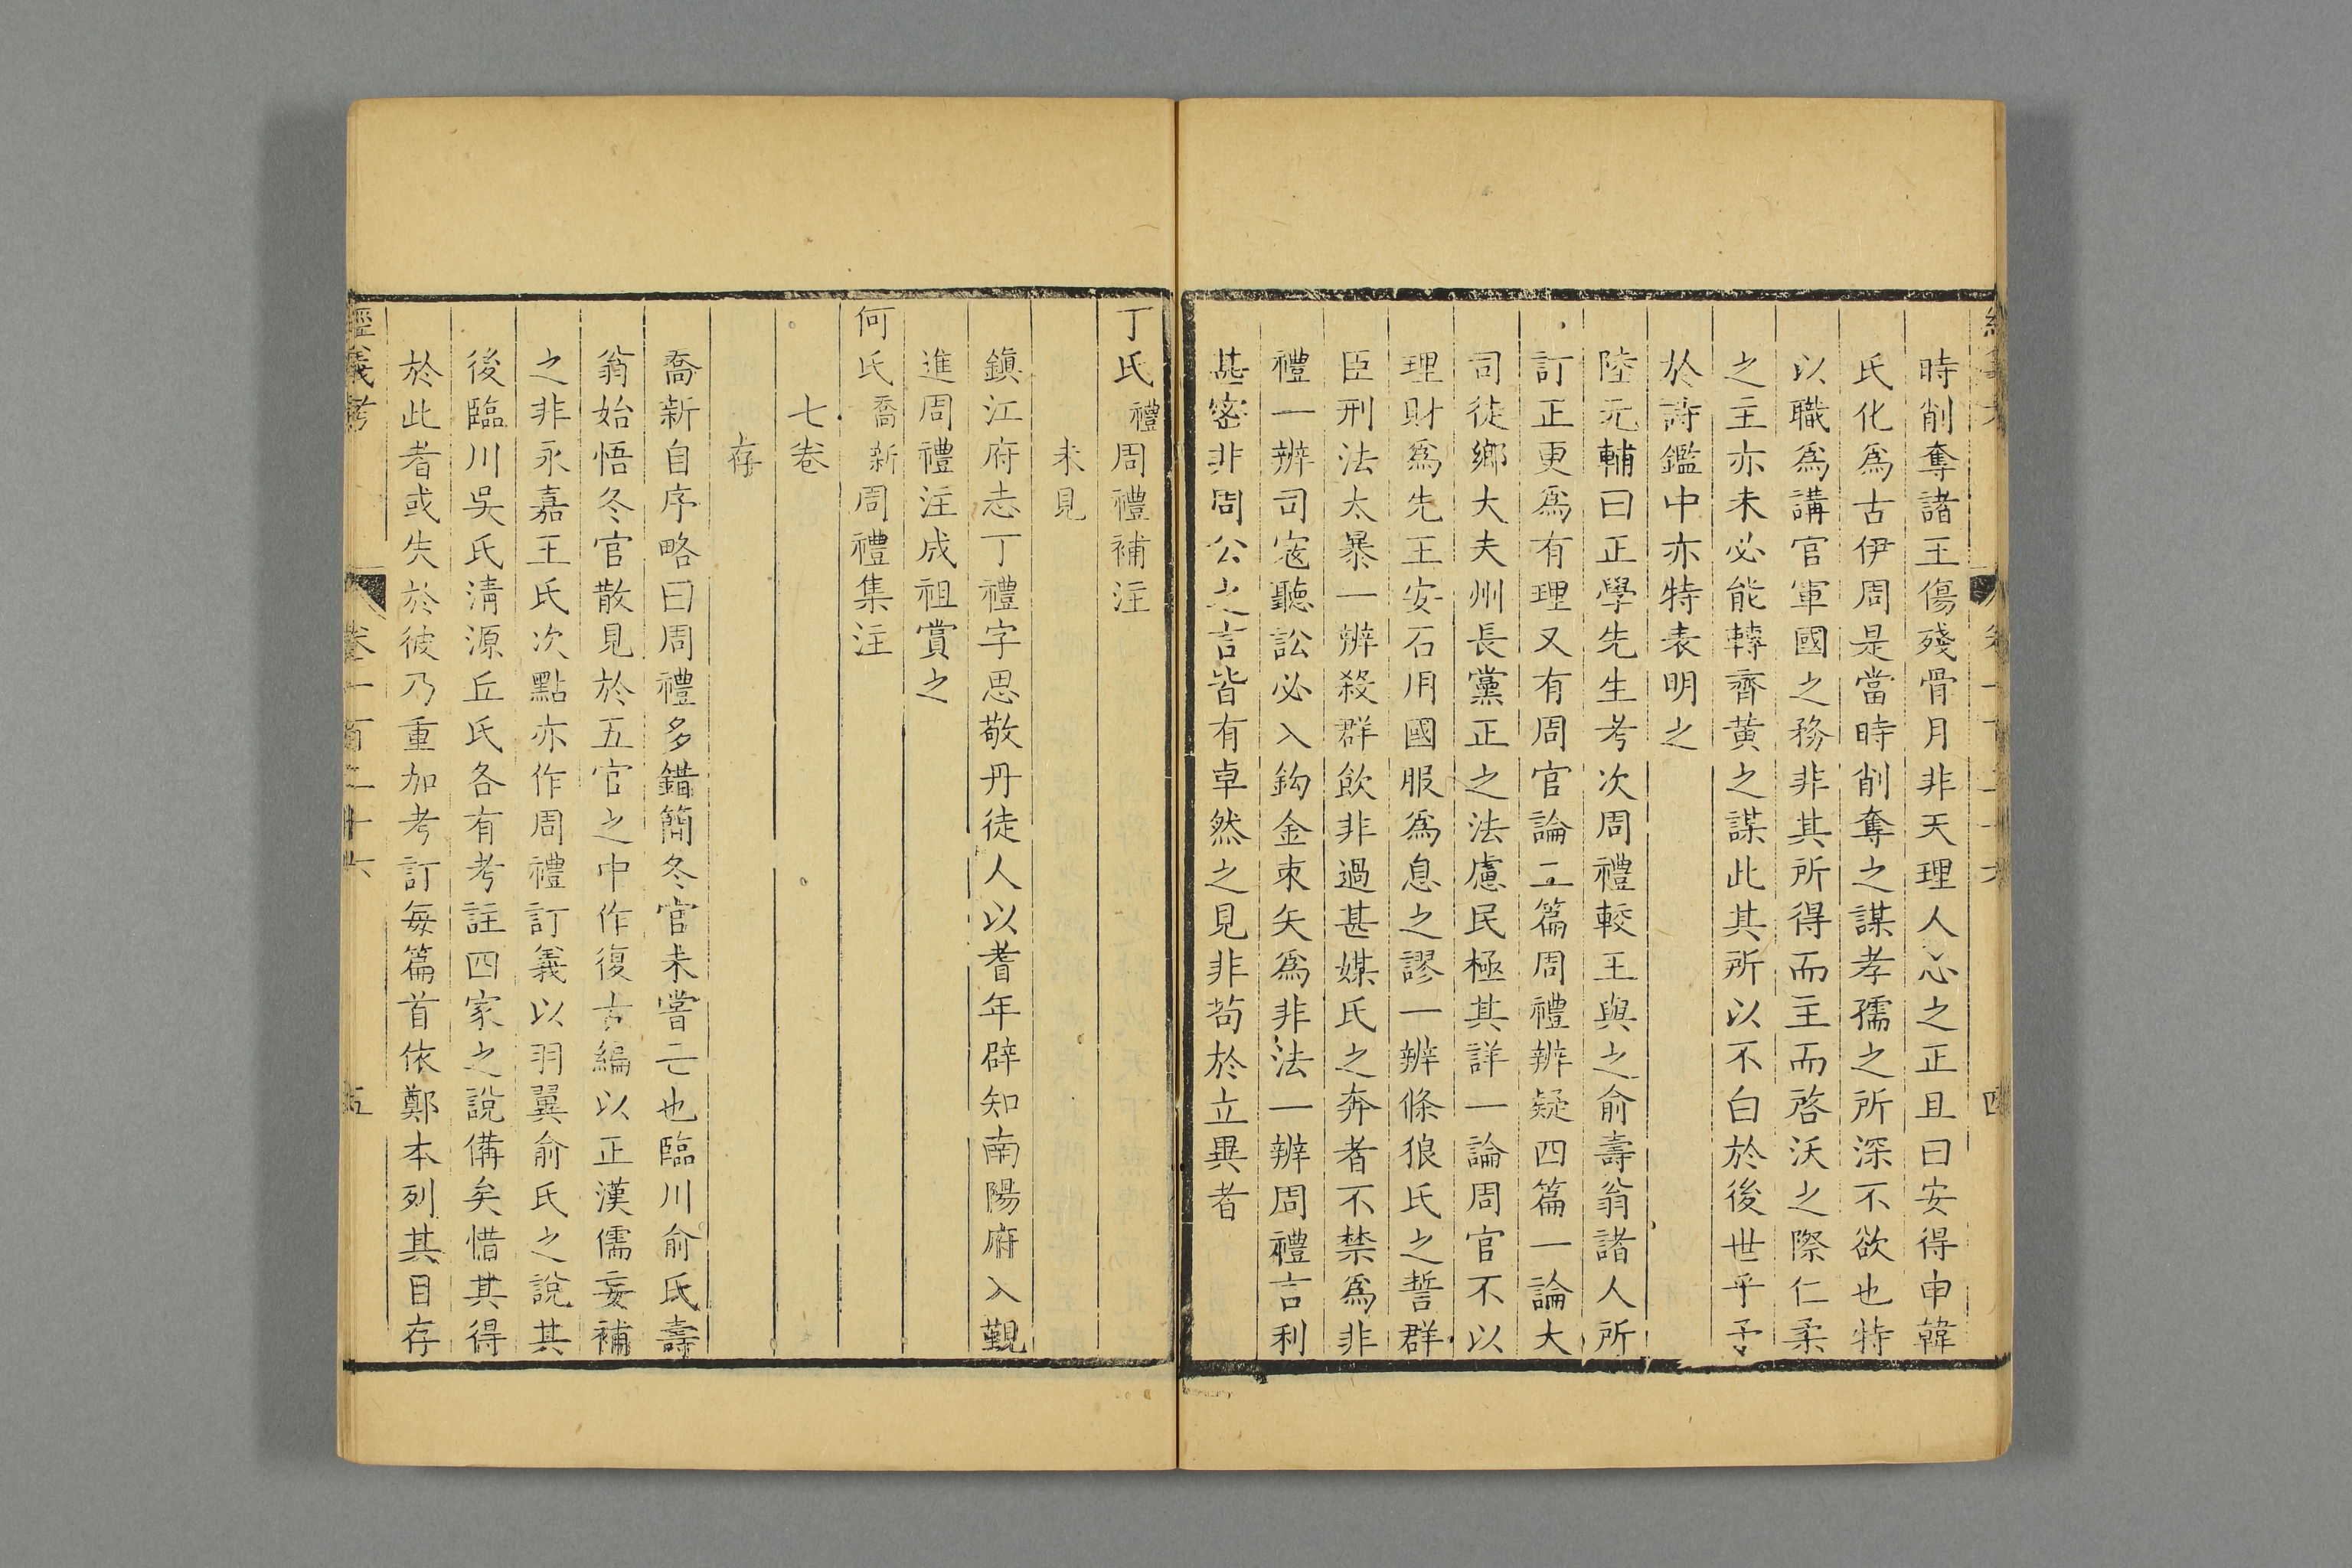 時削奪諸王傷殘骨月非天理人心之正且曰安得申韓
氏化為古伊周是當時削奪之謀孝孺之所深不欲也特
以職為講官軍國之務非其所得而主而啓沃之際仁柔
之主亦未必能轉齊黄之謀此其所以不白於後世乎予
於詩鑑中亦特表明之
陸元輔曰正學先生考次周禮較王與之俞壽翁諸人所
訂正更為有理又有周官論二篇周禮辨疑四篇一論大
司徒鄉大夫州長黨正之法慮民極其詳一論周官不以
理財為先王安石用國服為息之謬一辨條狼氏之誓群
臣刑法太暴一辨殺群飲非過甚媒氏之奔者不禁為非
禮一辨司寇聽訟必入鈎金束矢為非法一辨周禮言利
甚密非周公之言皆有卓然之見非苟於立異者
丁氏禮周禮補注
未見
鎮江府志丁禮字思敬丹徒人以耆年辟知南陽府入覲
進周禮注成祖賞之
何氏喬新周禮集注
七卷
存
喬新自序略曰周禮多錯簡冬官未嘗亡也臨川俞氏壽
翁始悟冬官散見於五官之中作復古編以正漢儒妄補
之非永嘉王氏次點亦作周禮訂義以羽翼俞氏之說其
後臨川吳氏清源丘氏各有考註四家之說備矣惜其得
於此者或失於彼乃重加考訂每篇首依鄭本列其目存
經義考 卷一百二十六 五